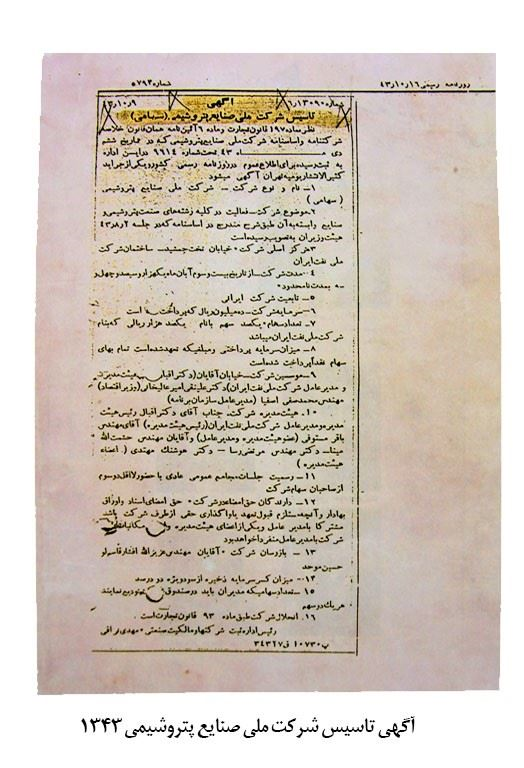 روزنامه رسمی ۱۶ر۱۰ر۴۳
شماره ۵۷۹۴
شماره ۱۳۰۹۰ر۱
آگهی
۹ر۱۰ر۴۳
تاسیس شرکت ملی صنایع پتروشیمی (سهامی)
نظر ماده ۱۹۷ قانون تجارت و ماده ۶ آئین نامه همان قانون خلاصه
شرکتنامه و اساسنامه شرکت ملی صنایع پتروشیمی که در تاریخ ششم
دی ماه ۴۳ تحت شماره ۹۶۱۴ در این اداره
به ثبت رسیده برای اطلاع عموم در روزنامه رسمی کشور و یکی از جراید
کثیرالانتشار یومیه تهران آگهی میشود
۱ - نام و نوع شرکت - شرکت ملی صنایع پتروشیمی
( سهامی )
۲ - موضوع شرکت - فعالیت در کلیه رشته‌های صنعت پتروشیمی و
صنایع وابسته به آن طبق شرح مندرج در اساسنامه که در جلسه ۲ر۸ر۴۳
هیئت وزیران به تصویب رسیده است
۳ - مرکز اصلی شرکت - خیابان تخت جمشید - ساختمان شرکت
ملی نفت ایران
۴ - مدت شرکت - از تاریخ بیست و سوم آبان ماه یکهزار و سیصد و چهل و
سه بمدت نامحدود
۵ - تابعیت شرکت ایرانی
۶ - سرمایه شرکت - ده میلیون ریال که پرداخت شده است
۷ - تعداد سهام - یکصد سهم با نام یکصد هزار ریالی که بنام
شرکت ملی نفت ایران میباشد
۸ - میزان سرمایه پرداختی و مبلغی که تعهد شده است تمام بهای
سهام نقداً پرداخت شده است
۹ - موسسین شرکت - خیابان آقایان (دکتر اقبال رئیس هیئت مدیره
و مدیر عامل شرکت ملی نفت ایران) دکتر علینقی امیر عالیخانی (وزیر اقتصاد)
مهندس محمد صفی اصفیا (مدیر عامل سازمان برنامه)
۱۰ - هیئت مدیره شرکت - جناب آقای دکتر اقبال رئیس هیئت
مدیره و مدیر عامل شرکت ملی نفت ایران (رئیس هیئت مدیره) آقای مهندس
باقر مستوفی (عضو هیئت مدیره و مدیر عامل) و آقایان مهندس حشمت الله
مینا - دکتر مهندس مرتضی رسا - دکتر هوشنگ مهتدی ( اعضاء
هیئت مدیره )
۱۱ - رسمیت جلسات مجامع عمومی عادی با حضور لااقل دوسوم
از صاحبان سهام شرکت
۱۲ - دارندگان حق امضاء در شرکت - حق امضای اسناد و اوراق
بهادار و آنچه مستلزم قبول تعهد یا واگذاری حقی از طرف شرکت باشد
مشترکا با مدیر عامل و یکی از اعضای هیئت مدیره و مکاتبات
شرکت با مدیر عامل منفردا خواهد بود
۱۳ - بازرسان شرکت - آقایان مهندس عزیزالله افشار قاسملو
حسین موحد
۱۴ - میزان کسر سرمایه ذخیره از سود ویژه دو درصد
۱۵ - تعداد سهامی که مدیران باید در صندوق تودیع نمایند
هریک دو سهم
۱۶ - انحلال شرکت طبق ماده ۹۳ قانون تجارت است
رئیس اداره ثبت شرکتها و مالکیت صنعتی - مهدی نراقی
پ ۱۰۷۳۰ ق ۳۴۳۲۷
آگهی تاسیس شرکت ملی صنایع پتروشیمی ۱۳۴۳